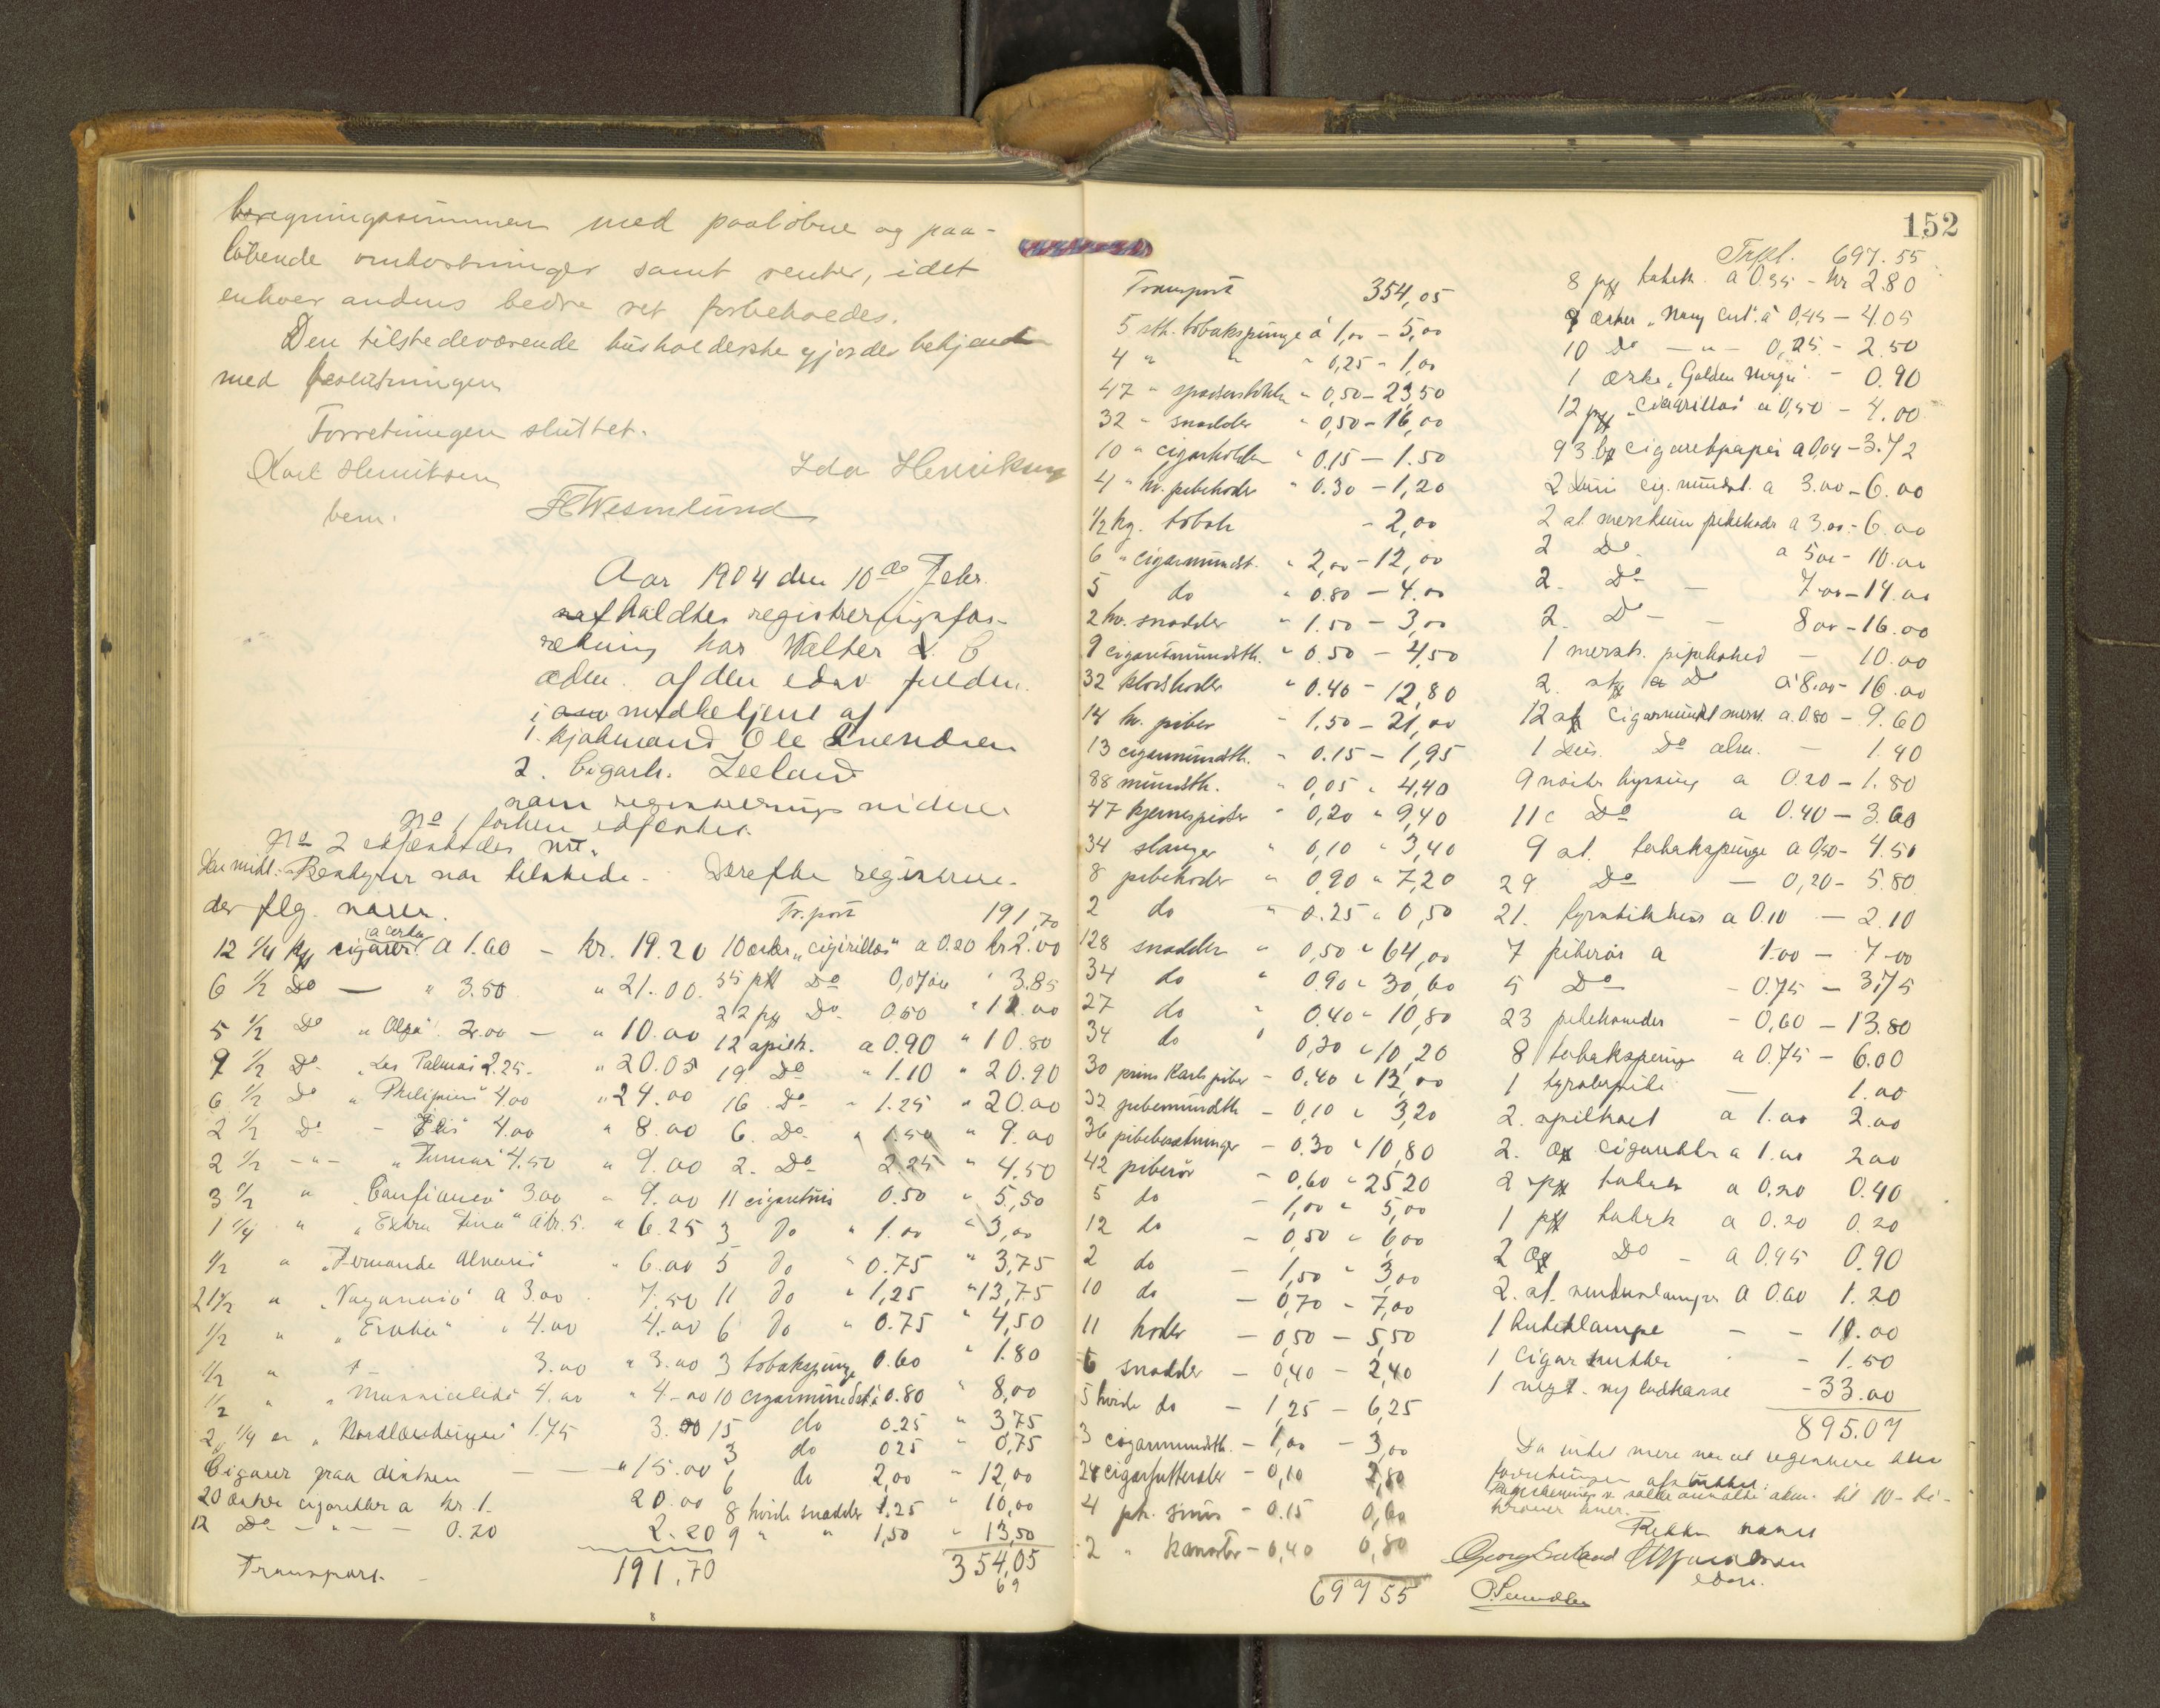 beregningssummen med paaløbne og paa-
løbende omkostninger samt renter, idet
enhver andens bedre ret forbeholdes.
Den tilstedeværende husholderske gjordes bekjendt
med beslutningen
Forretningen sluttet.
Karl Henriksen Ida Henriksen
bem.
Aar 1904 den 10de Febr.
afholdtes registreringsfor-
retning hos Walter
af den edsv fuldm.
i medbetjent af
1. kjøbmand Ole Svendsen
2. Cigarh. Seeland
som registreringsvidner
No 1 forhen edfæstet.
No 2 edfæstedes nu.
var tilstede. Derefter registrere-
des flg. varer.
12 1/4 kss cigarer a 1.60 - kr. 19.20
6 1/2 Do — " 3.50 " 21.00
5 1/2 Do 2.00 — " 10.00
9 1/2 Do "Las Palmas 2.25 - " 20.05
6 1/2 Do " 4.00 " 24.00
2 1/2 Do - 4.00 " 8.00
2 1/2 - " - 4.50 " 9.00
3 1/2 " 3.00 " 9.00
1 1/4 " "Extra Fina" a kr. 5. " 6.25
1/2 " " 6.00
2 1/2 " a 3.00 7.50
1/2 " " 4.00 4.00
1/2 " 3.00 " 3.00
1/2 " 4.00 " 4.00
2 1/4 1.75 3.50
Cigarer paa disken — — " 15.00
20 æsker cigaretter a kr. 1. 20.00
12 Do - " - - 0.20 2.20
Transport - 191.70
Tr.port 191,70
10 æsker "cigirillos" a 0.20 kr 2.00
55 pk Do 0,07 " 3.85
22 pk Do 0.50 " 11.00
12 spilk. a 0.90 " 10.80
19 Do " 1.10 " 20.90
16 Do " 1.25 " 20.00
6. Do " 1.50 " 9.00
2. Do 2.25 " 4.50
11 cigaretuis 0.50 " 5,50
3 do " 1.00 " 3,00
5 do " 0.75 " 3,75
11 do " 1,25 " 13,75
6 do " 0.75 " 4,50
3 tobakspunge 0.60 " 1.80
10 cigarmundst. à 0.80 " 8,00
15 do 0.25 " 3,75
3 do 025 " 0,75
6 do 2,00 " 12,00
8 hvide snadder 1.25 " 10,00
9 " " 1,50 " 13,50
354,05
69
152
Transport 354,05
5 stk. tobakspunge à 1,00 - 5,00
4 " " " 0,25 - 1,00
47 " " 0,50 - 23,50
32 " snadder " 0,50 - 16,00
10 " cigarholder " 0.15 - 1.50
4 " hv. pibehoder " 0.30 - 1,20
1/2 kg. tobak - 2,00
6 " cigarmundst. " 2,00 - 12,00
5 do " 0.80 - 4.00
2 hv. snadder " 1.50 - 3,00
9 cigaretmundstk. " 0.50 - 4,50
32 " 0.40 - 12,80
14 hv. piber - 1,50 - 21,00
13 cigarmundstk. - 0.15 - 1,95
88 mundstk. " 0,05 " 4,40
47 " 0,20 " 9,40
34 slanger " 0,10 " 3,40
8 pibehoder " 0,90 " 7,20
2 do " 0.25 " 0,50
128 snadder " 0,50 " 64,00
34 do " 0.90 " 30,60
27 do " 0.40 " 10,80
34 do " 0,30 " 10,20
30 prins Karls piber - 0,40 " 12,00
32 pibemundstk - 0,10 " 3,20
36 pibebesætninger - 0.30 " 10,80
42 piberør - 0,60 " 25,20
5 do - 1,00 " 5,00
12 do - 0,50 " 6,00
2 do - 1,50 " 3,00
10 do - 0,70 - 7,00
11 hoder - 0,50 - 5,50
6 snadder - 0,40 - 2,40
5 hvide do - 1,25 - 6,25
3 cigarmundstk. - 1,00 - 3,00
28 cigarfutteraler - 0,10 2,80
4 pk. snus - 0.15 0,60
2 " - 0,40 0,80
697 55
Trpt. 697.55
8 pk tobak a 0.35 - kr 2.80
9 æsker "Navy Cut" a 0,45 - 4.05
10 Do - " - 0,25 - 2.50
1 æske "Golden - 0.90
12 pk - 4.00
93 cigaretpapir a 0,04 - 3.72
2 cig. mundst. a 3.00 - 6.00
2 st. merskum pibehode a 3.00 - 6.00
2 Do a 5 00 - 10.00
2. Do — 7 00 - 14.00
2. Do - 8 00 - 16.00
1 mersk. pipehoved — 10.00
2. Do a 8.00 - 16.00
12 st cigarmundst mersk. a 0.80 - 9.60
1 Do alm. — 1.40
9 a 0.20 - 1.80
11 Do a 0.40 - 3.60
9 st. tobakspunge a 0,50 - 4.50
29 Do — 0,20 - 5.80
21. a 0.10 — 2.10
7 piberør a 1.00 - 7.00
5 Do - 0.75 - 3,75
23 pibehoveder - 0,60 - 13.80
8 tobakspung a 0.75 - 6.00
1 tyrolerpibe — 1.00
2. spilkort a 1.00 2.00
2. æsk cigaretter a 1.00 2.00
2 pk tobak a 0,20 0.40
1 pk tobak a 0.20 0.20
2 æsk Do - a 0.45 0.90
2. st. a 0.60 1.20
1 butiklampe - - 11.00
1 cigar - 1.50
1 ny ladkasse - 33.00
895.07
Da intet mere var at registrere blev
forretningen afsluttet.
kroner hver.
Rettens